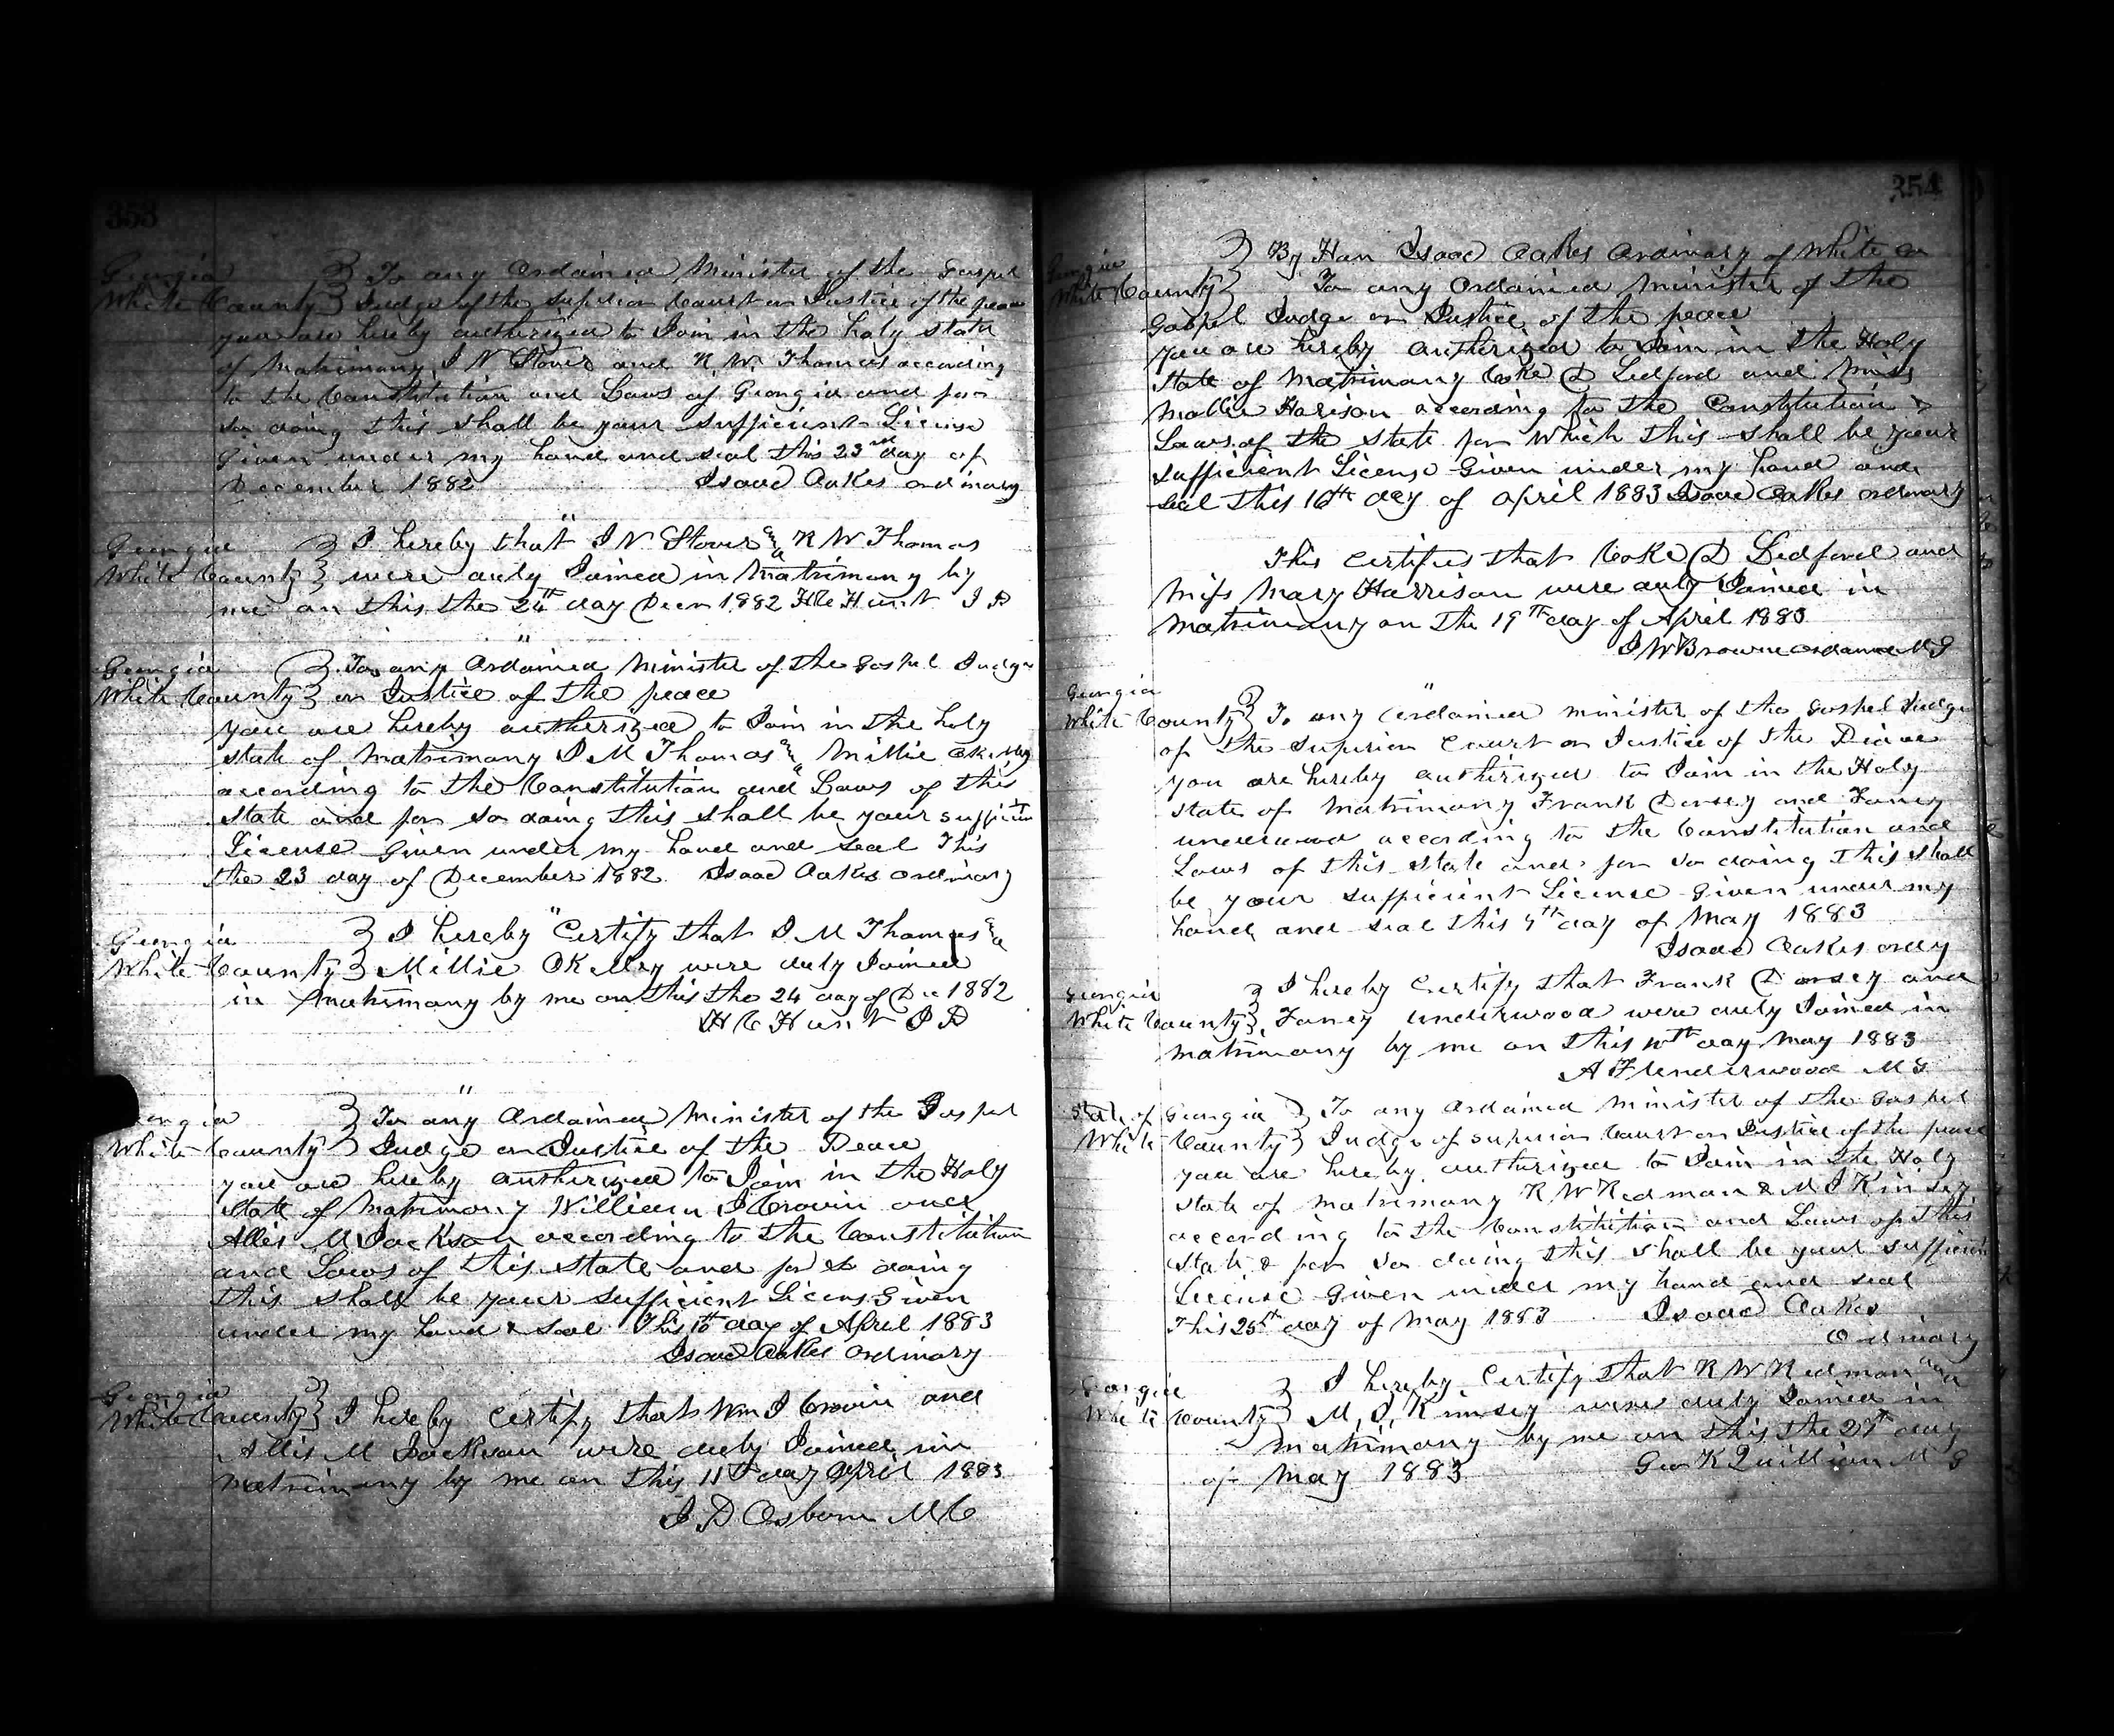 353
Georgia } To any Ordained Minister of the Gospel
White County } Judge of the Superior Court or Justice of the peace
you are hereby authorized to Join in the holy state
of Matrimony J N Stover and R. W. Thomas according
to the Constitution and Laws of Georgia and for
so doing this shall be your sufficient License
Given under my hand and seal this 23rd day of
December 1882 Isaac Oakes ordinary
"
Georgia } I hereby that J N Stover & R W Thomas
White County } were duly Joined in Matrimony by
me on this the 24th day Decr 1882 H C Hunt J P
"
Georgia } To any Ordained Minister of the Gospel Judge
White County } or Justice of the peace
you are hereby authorized to Join in the holy
state of Matrimony J M Thomas & Millie
according to the Constitution and Laws of this
state and for so doing this shall be your sufficient
License Given under my hand and seal This
the 23 day of December 1882 Isaac Oakes ordinary
"
Georgia } I hereby Certify that J M Thomas &
White County } Millie OKelley were duly Joined
in Matrimony by me on this the 24 day of Dec 1882
H C Hunt J P
"
Georgia } To any Ordained Minister of the Gospel
White County } Judge or Justice of the Peace
you are hereby authorized to Join in the Holy
state of Matrimony William J and
Allis M Jackson according to the Constitution
and Laws of this state and for so doing
this shall be your sufficient Licens Given
under my hand & seal This 10th day of April 1883
Isaac Oakes Ordinary
Georgia }
White County } I hereby certify that Wm J and
Allis M Jackson were duly Joined in
Matrimony by me on this 11th day April 1883
J P Osborn M G
354
Georgia } By Hon Isaac Oakes Ordinary of White Co
White County } To any Ordained Minister of the
Gospel Judge or Justice of the peace
you are hereby authorized to Join in the Holy
state of Matrimony Coke D Ledford and Miss
Mollie Harison according to the Constitution &
Laws of the state for which this shall be your
sufficient License Given under my hand and
seal this 16th day of April 1883 Isaac Oakes ordinary
This certifies that Coke D Ledford and
Miss Mary Harrison were duly Joined in
Matrimony on the 19th day of April 1883
J W Browne M G
"
Georgia
White County } To any Ordained minister of the Gospel Judge
of the Superior Court or Justice of the Peace
you are hereby authorized to Join in the Holy
state of Matrimony Frank Dorsey and Faney
underwood according to the Constitution and
Laws of this state and for so doing this shall
be your sufficient License Given under my
hand and seal this 9th day of May 1883
Isaac Oakes ordy
Georgia } I hereby Certify that Frank Dorsey and
White County } Faney underwood were duly Joined in
matrimony by me on this 10th day May 1883
A F Underwood M G
State of Georgia } To any Ordained Minister of the Gospel
White County } Judge of superior Court or Justice of the peace
you are hereby authorized to Join in the Holy
state of Matrimony R W Redman & M J Kinsey
according to the Constitution and Laws of this
state & for so doing this shall be your sufficient
License Given under my hand and seal
This 25th day of May 1883 Isaac Oakes
Ordinary
Georgia } I hereby Certify that R W Redman and
White County } M, J, Kinsey were duly Joined in
matrimony by me on this the 27th day
of May 1883 Geo K Quillian M G